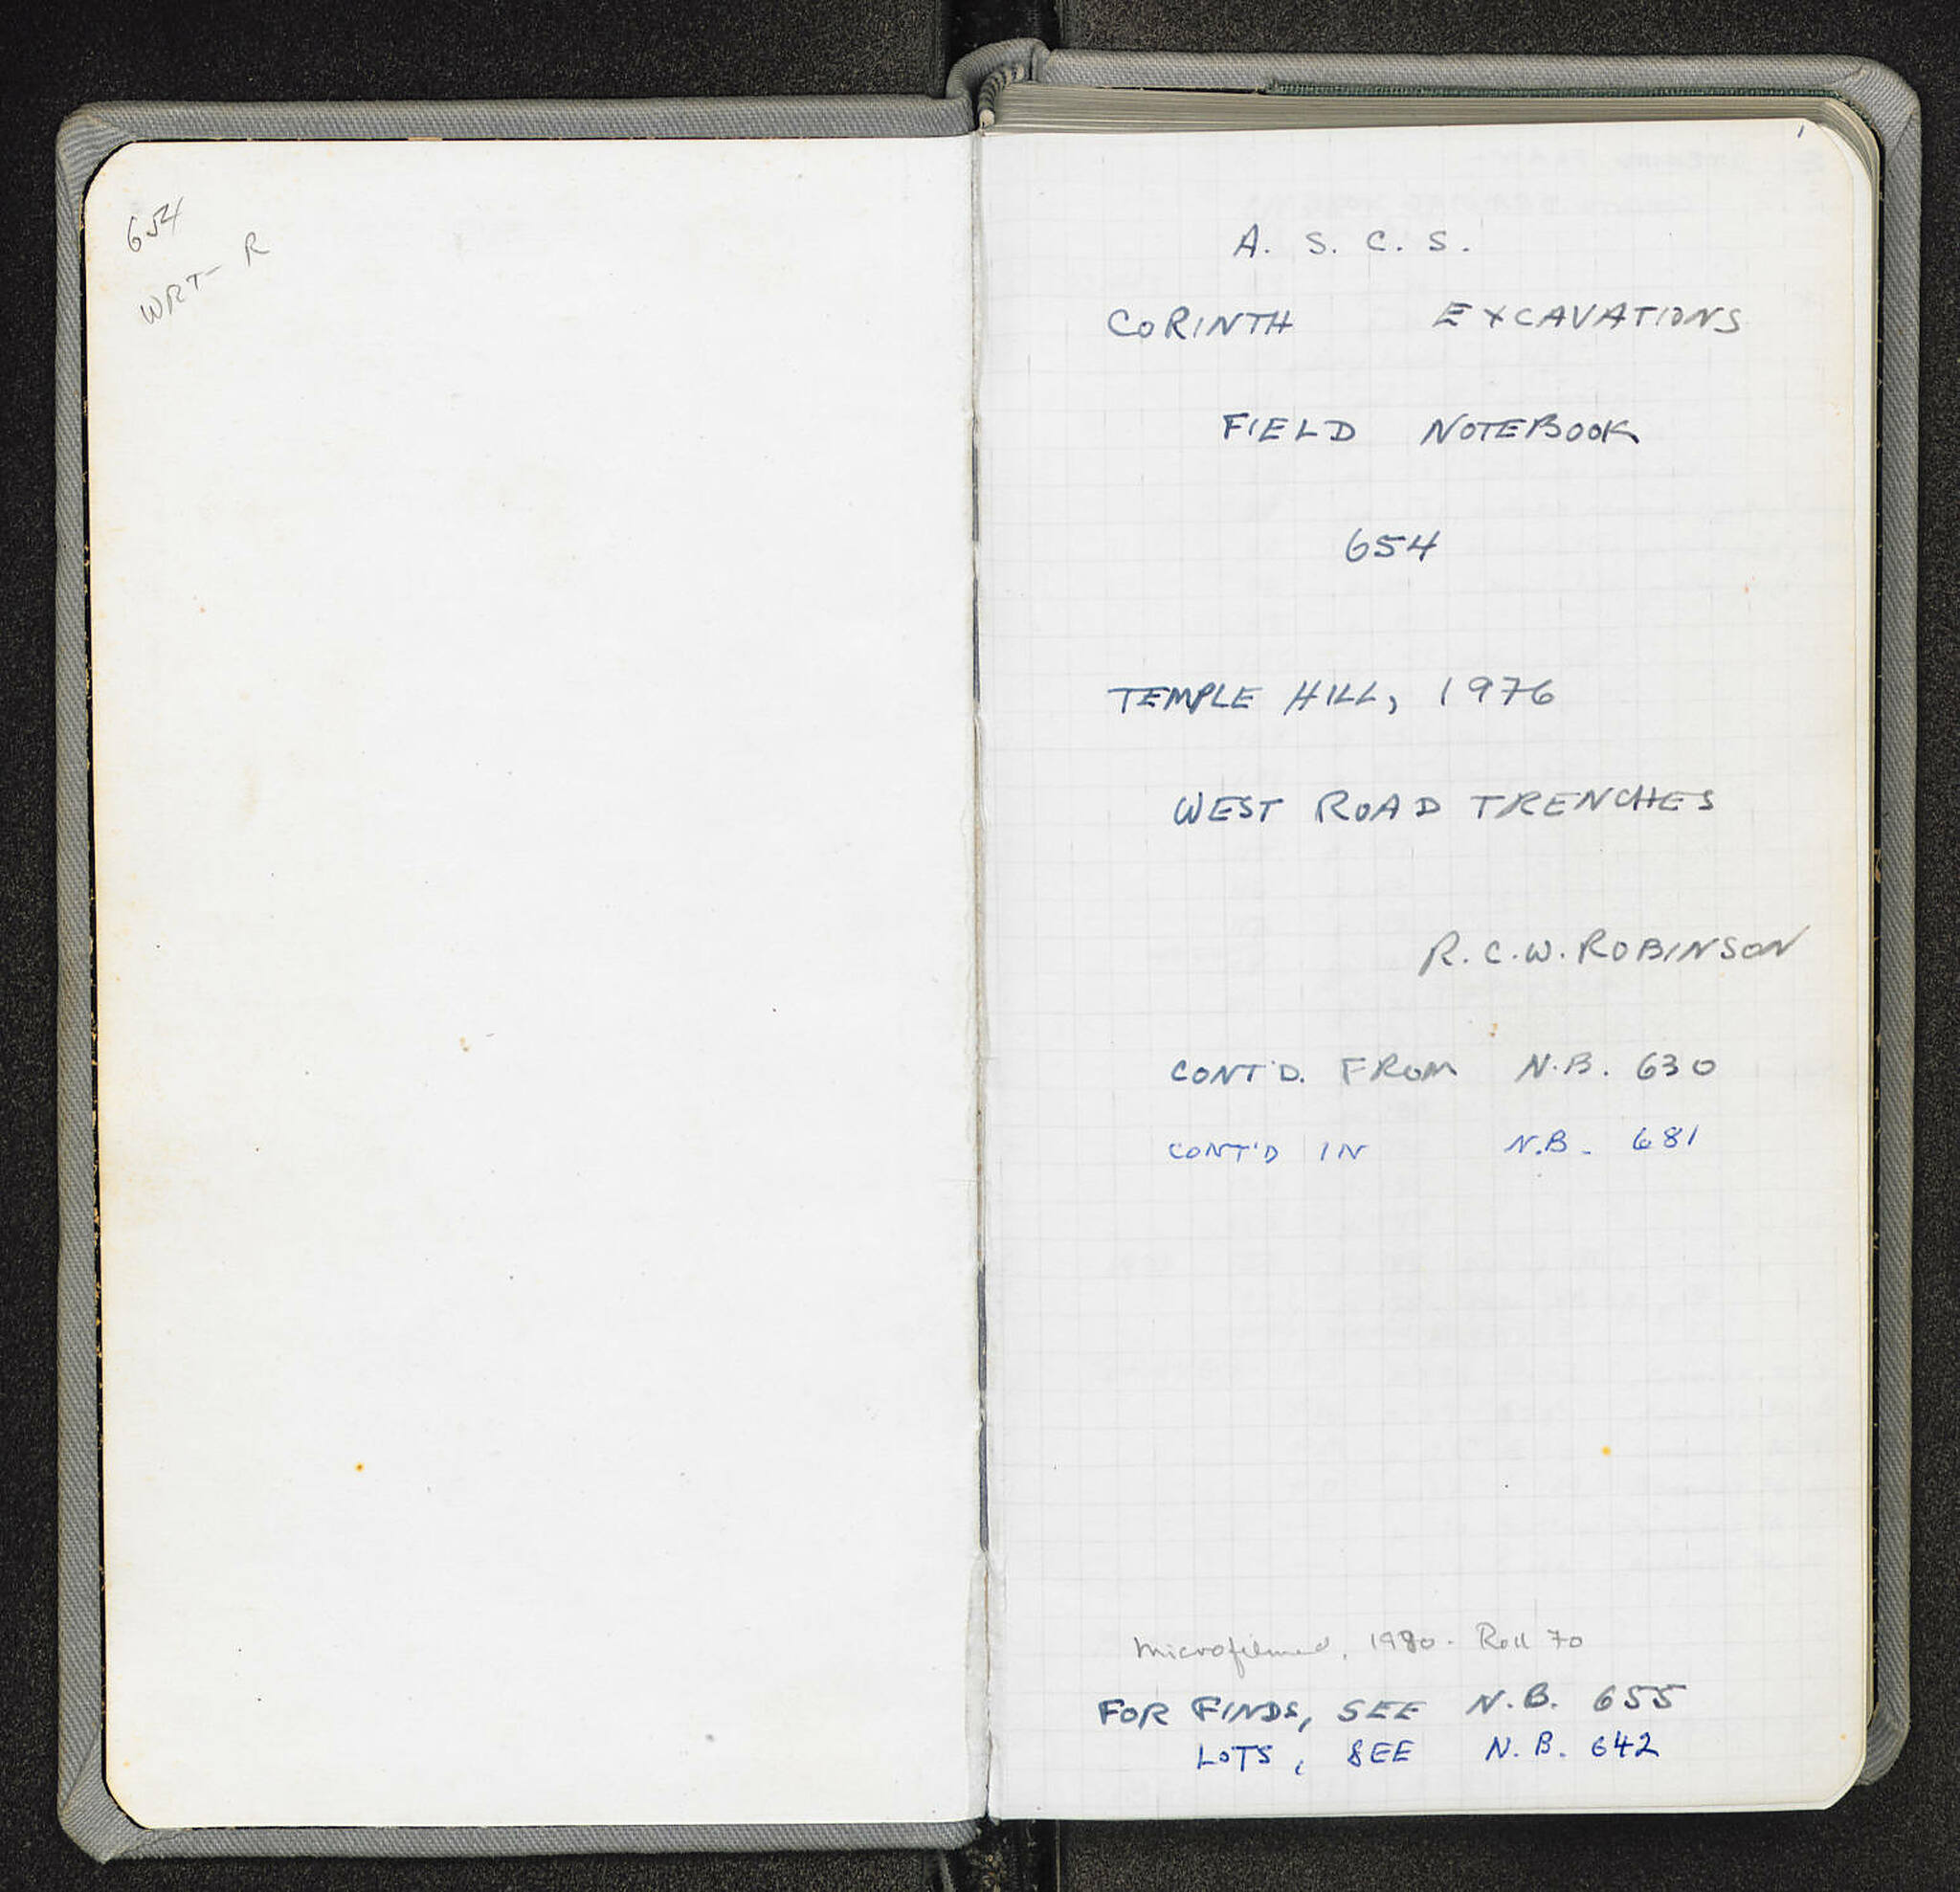 654
WRT- R
1
A. S. C. S.
CORINTH EXCAVATIONS
FIELD NOTEBOOK
654
TEMPLE HILL, 1976
WEST ROAD TRENCHES
R. C. W. ROBINSON
CONT'D. FROM N.B. 630
CONT'D IN N.B. 681
Microfilmed, 1980. Roll 70
FOR FINDS, SEE N.B. 655
LOTS, SEE N.B. 642